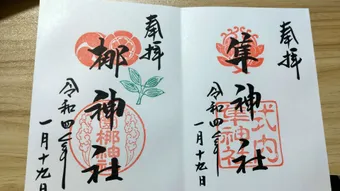 奉拝
隼神社
式内
隼神社
令和四年
一月十九日
奉拝
梛神社
令和四年
一月十九日